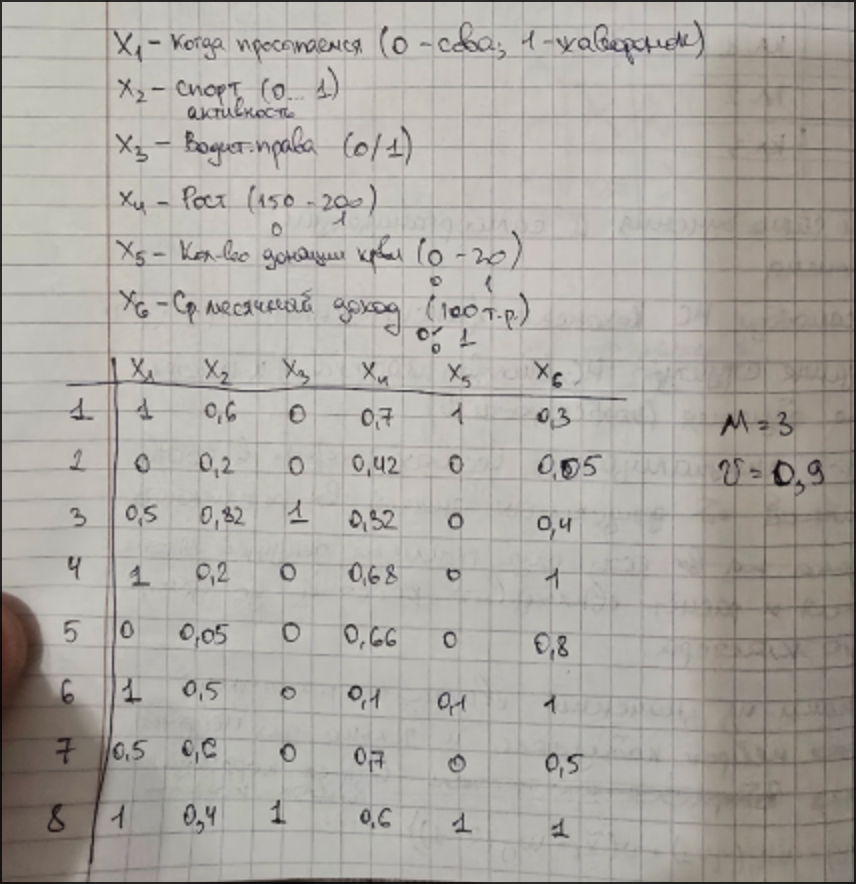 X1 – Когда просыпаемся (0 – сова; 1 – жаворонок)
X2 – Спорт (0... 1)
активность
X3 – Водит. права (0/1)
X4 – Рост (150 - 200)
0 1
X5 – Кол-во донации крови (0 - 20)
0 1
X6 – Ср. месячный доход (100 т.р.)
0 1
X1 X2 X3 X4 X5 X6
1 1 0,6 0 0,7 1 0,3 M = 3
2 0 0,2 0 0,42 0 0,05 V = 0,9
3 0,5 0,82 1 0,32 0 0,4
4 1 0,2 0 0,68 0 1
5 0 0,05 0 0,66 0 0,8
6 1 0,5 0 0,1 0,1 1
7 0,5 0,6 0 0,7 0 0,5
8 1 0,4 1 0,6 1 1